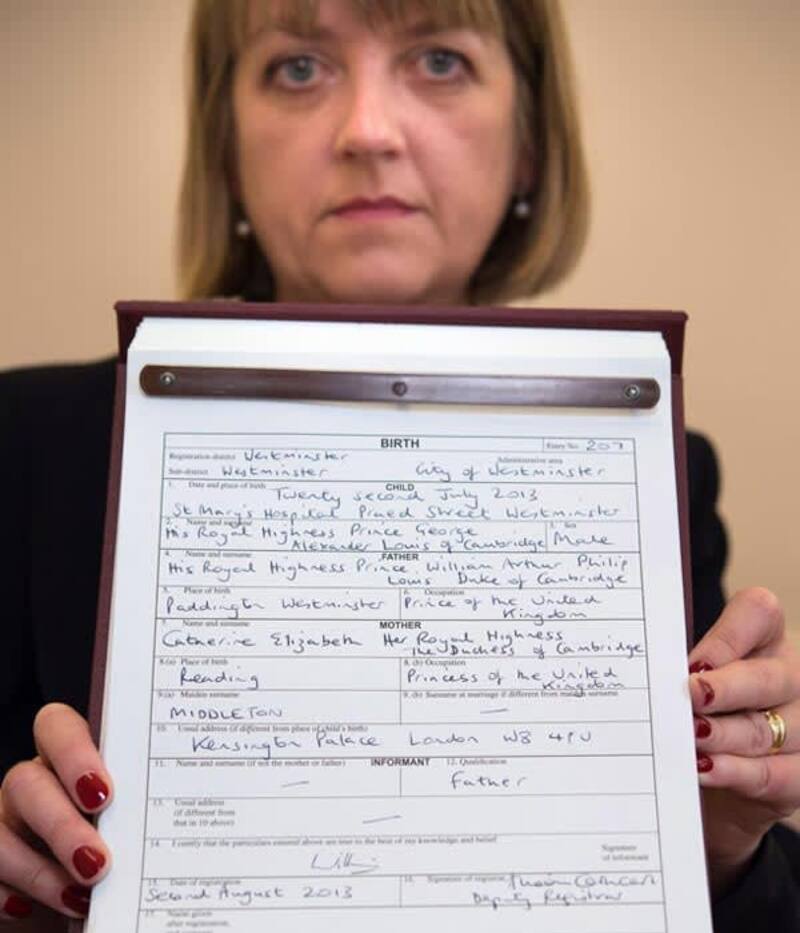 BIRTH
Entry No. 207
Registration district Westminster
Administrative area
Sub-district Westminster
City of Westminster
1. Date and place of birth
CHILD
Twenty second July 2013
St Mary's Hospital Praed Street Westminster
2. Name and surname
3. Sex
His Royal Highness Prince George
Alexander Louis of Cambridge
Male
4. Name and surname
FATHER
His Royal Highness Prince William Arthur Philip
Louis Duke of Cambridge
5. Place of birth
6. Occupation
Paddington Westminster
Prince of the United
Kingdom
7. Name and surname
MOTHER
Catherine Elizabeth Her Royal Highness
The Duchess of Cambridge
8.(a) Place of birth
8. (b) Occupation
Reading
Princess of the United
Kingdom
9.(a) Maiden surname
9. (b) Surname at marriage if different from maiden surname
MIDDLETON
—
10. Usual address (if different from place of child's birth)
Kensington Palace London W8 4PU
11. Name and surname (if not the mother or father)
INFORMANT
12. Qualification
—
Father
13. Usual address
(if different from
that in 10 above)
—
14. I certify that the particulars entered above are true to the best of my knowledge and belief
Signature
of informant
15. Date of registration
16. Signature of registrar
Second August 2013
Deputy Registrar
17. Name given
after registration,